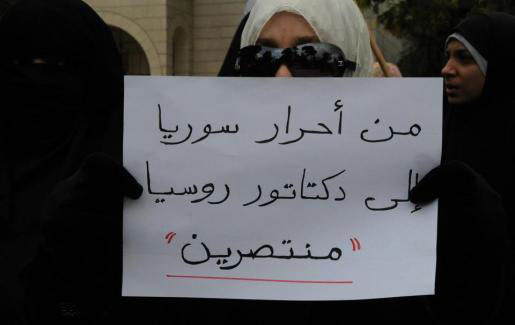 من أحرار سوريا
إلى دكتاتور روسيا
"منتصرين"